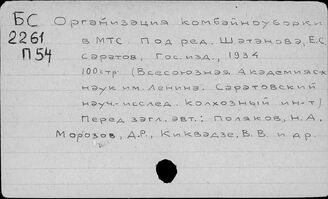 БС Организация комбайноуборки
2261 в МТС. Под ред. Шатанова, Е.С.
П54 Саратов, Гос.изд., 1934
100стр (Всесоюзная Академия с-х
наук им. Ленина. Саратовский
науч.-исслед. колхозный ин-т)
Перед загл. авт.: Поляков, Н.А,
Морозов, Д.Р., Киквадзе, В.В. и др.